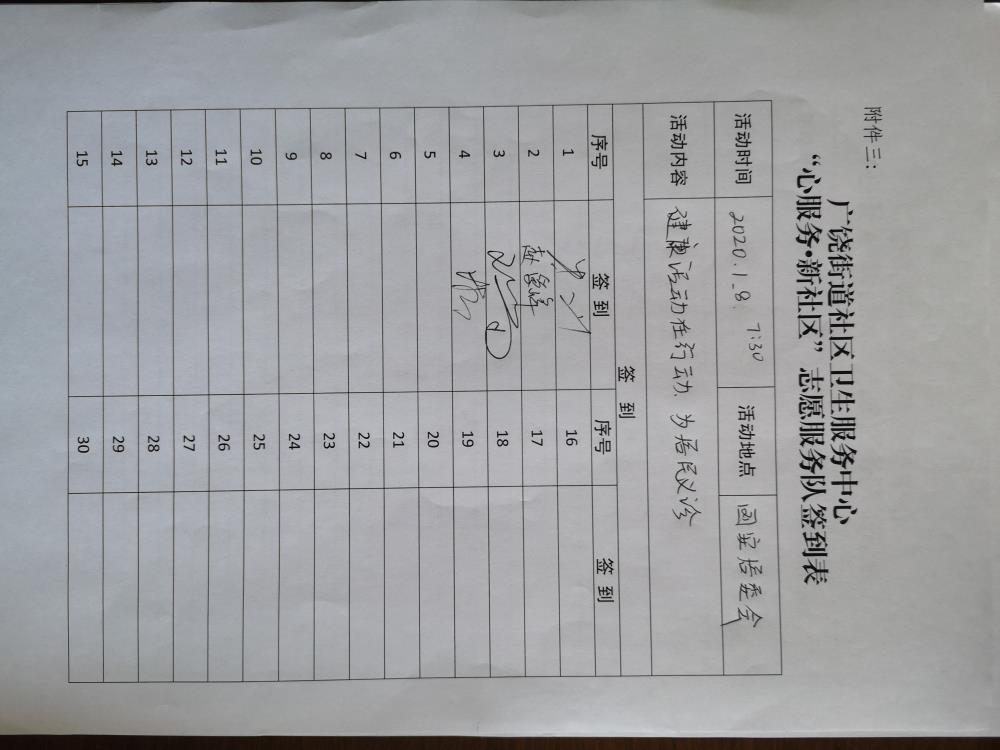 附件三:
广饶街道社区卫生服务中心
“心服务•新社区”志愿服务队签到表
活动时间 2020.1.8. 7:30 活动地点 国安居委会
活动内容 健康活动在行动 为居民义诊
签 到
序号 签 到 序号 签 到
1 16
2 17
3 18
4 19
5 20
6 21
7 22
8 23
9 24
10 25
11 26
12 27
13 28
14 29
15 30